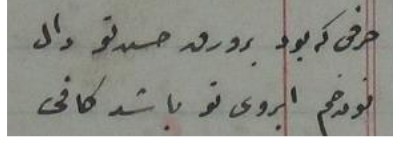 حرفی که بود بر ورق حسن تو دال
نون خم ابروی تو باشد کافی